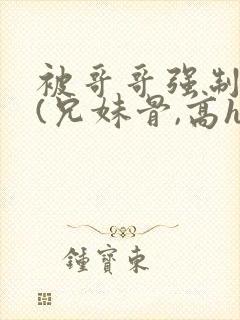 被哥哥强制
(兄妹骨,高h
鍾寶東